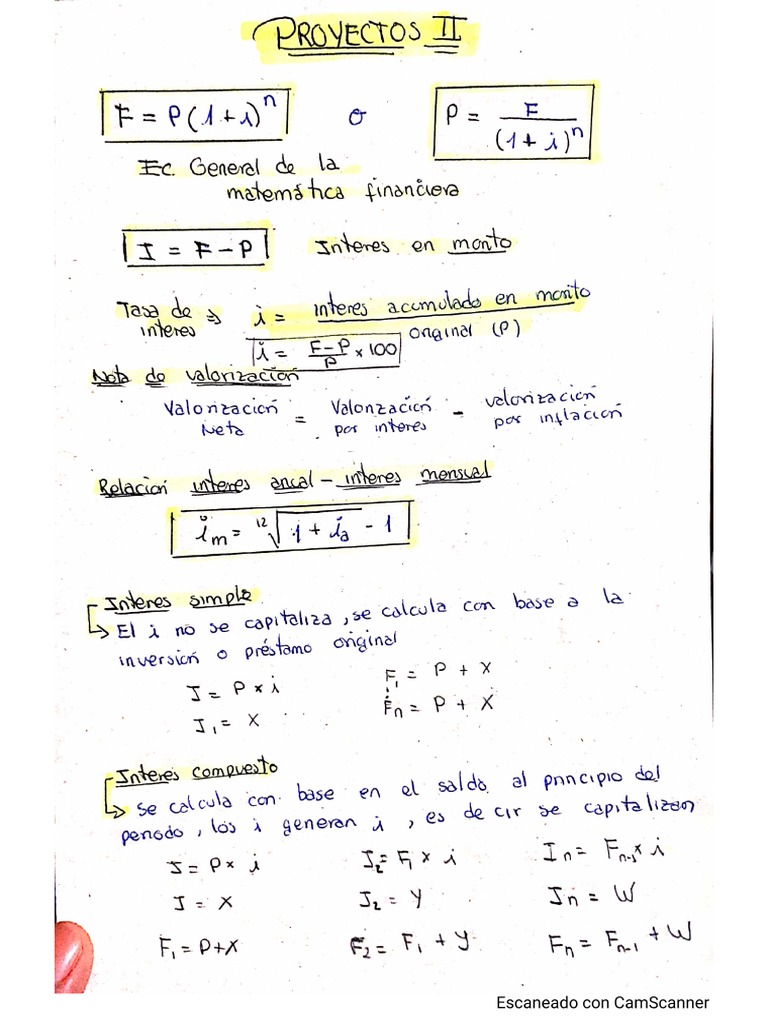 PROYECTOS II
F = P(1+i)^n o P = F / (1+i)^n
Ec. General de la
matemática financiera
I = F - P Interes en monto
Tasa de interes ⇒ i = interes acumulado en monto / original (P)
i = F-P / P × 100
Nota de valorización
Valorización Neta = Valorización por interes - valorización por inflación
Relación interes anual - interes mensual
i_m = ¹²√(1 + i_a) - 1
Interes simple
El i no se capitaliza, se calcula con base a la
inversión o préstamo original
I = P × i F₁ = P + X
I₁ = X Fn = P + X
Interes compuesto
se calcula con base en el saldo al principio del
periodo, los i generan i, es decir se capitalizan
I = P × i I₂ = F₁ × i In = Fn-1 × i
I = X I₂ = Y In = W
F₁ = P+X F₂ = F₁ + Y Fn = Fn-1 + W
Escaneado con CamScanner